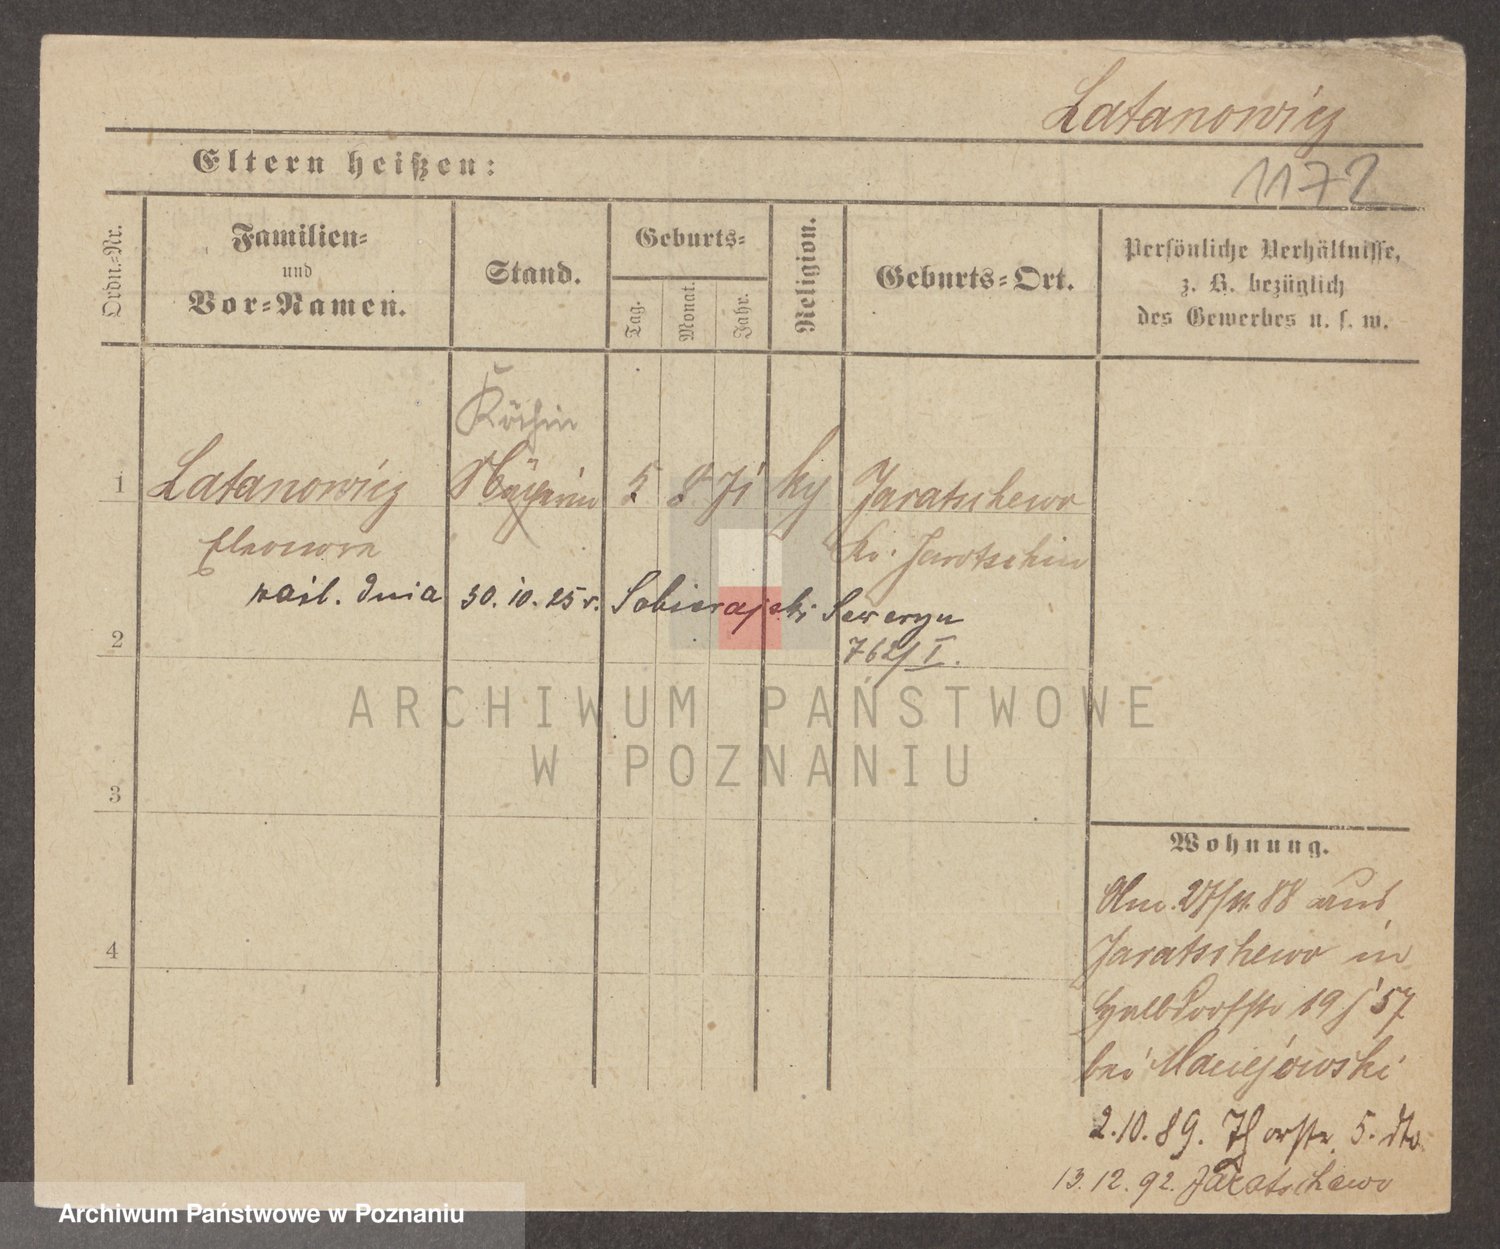 Latanowicz
1172
Eltern heißen:
Ordn.-Nr.
Familien-
und
Vor-Namen.
Stand.
Geburts-
Tag.
Monat.
Jahr.
Religion.
Geburts-Ort.
Persönliche Verhältnisse,
z. B. bezüglich
des Gewerbes u. s. w.
Köchin
1 Latanowicz Näherin 5 2 71 Jaratschewo
Eleonora Kr. Jarotschin
dnia 30.10.25 r. Sobierajski Seweryn
2 762/I.
ARCHIWUM PAŃSTWOWE
W POZNANIU
3
Wohnung.
27/11.88 aus
4 Jaratschewo in
Halbdorfstr 19 57
bei Maciejowski
2.10.89. 5. dto
13.12.92. Jaratschewo
Archiwum Państwowe w Poznaniu